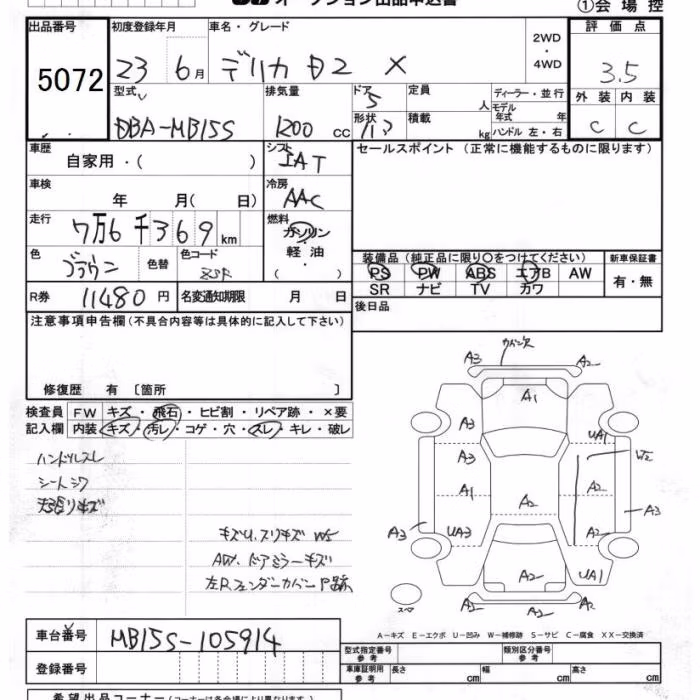 オークション出品申込書
①会場控
出品番号
初度登録年月
車名・グレード
2WD
・
4WD
評価点
5072
23 6月
デリカD2 X
3.5
型式
排気量
ドア
定員
人
ディーラー・並行
外装
内装
5
モデル年式
年
DBA-MB15S
1200 cc
形状
積載
kg
ハンドル 左・右
C
C
車歴
シフト
セールスポイント（正常に機能するものに限ります）
自家用・（ ）
IAT
車検
冷房
年 月（ 日）
AAC
走行
燃料
7万6千369km
ガソリン
軽油
（ ）
色
色替
色コード
装備品（純正品に限り○をつけてください）
新車保証書
ブラウン
PS PW ABS エアB AW
有・無
SR ナビ TV カワ
R券
11480円
名変通知期限
月 日
後日品
注意事項申告欄（不具合内容等は具体的に記入して下さい）
修復歴 有〔箇所 〕
検査員
FW
キズ・飛石・ヒビ割・リペア跡・×要
記入欄
内装
キズ・汚レ・コゲ・穴・スレ・キレ・破レ
ハンドルスレ
シートシワ
天張リキズ
キズU、スリキズ W5
ドアミラーキズ
左Rフェンダーカバー P跡
A3
A2
A1
A3
UA1
A3
W2
A1
A2
A2
A3
A3
UA3
A2
A2
UA1
A2
A1
A2
スペア
A－キズ E－エクボ U－凹み W－補修跡 S－サビ C－腐食 XX－交換済
車台番号
MB15S-105914
型式指定番号
参考
類別区分番号
参考
登録番号
車庫証明用
参考
長さ
幅
高さ
希望出品コーナー（コーナーは各会場により異なります）